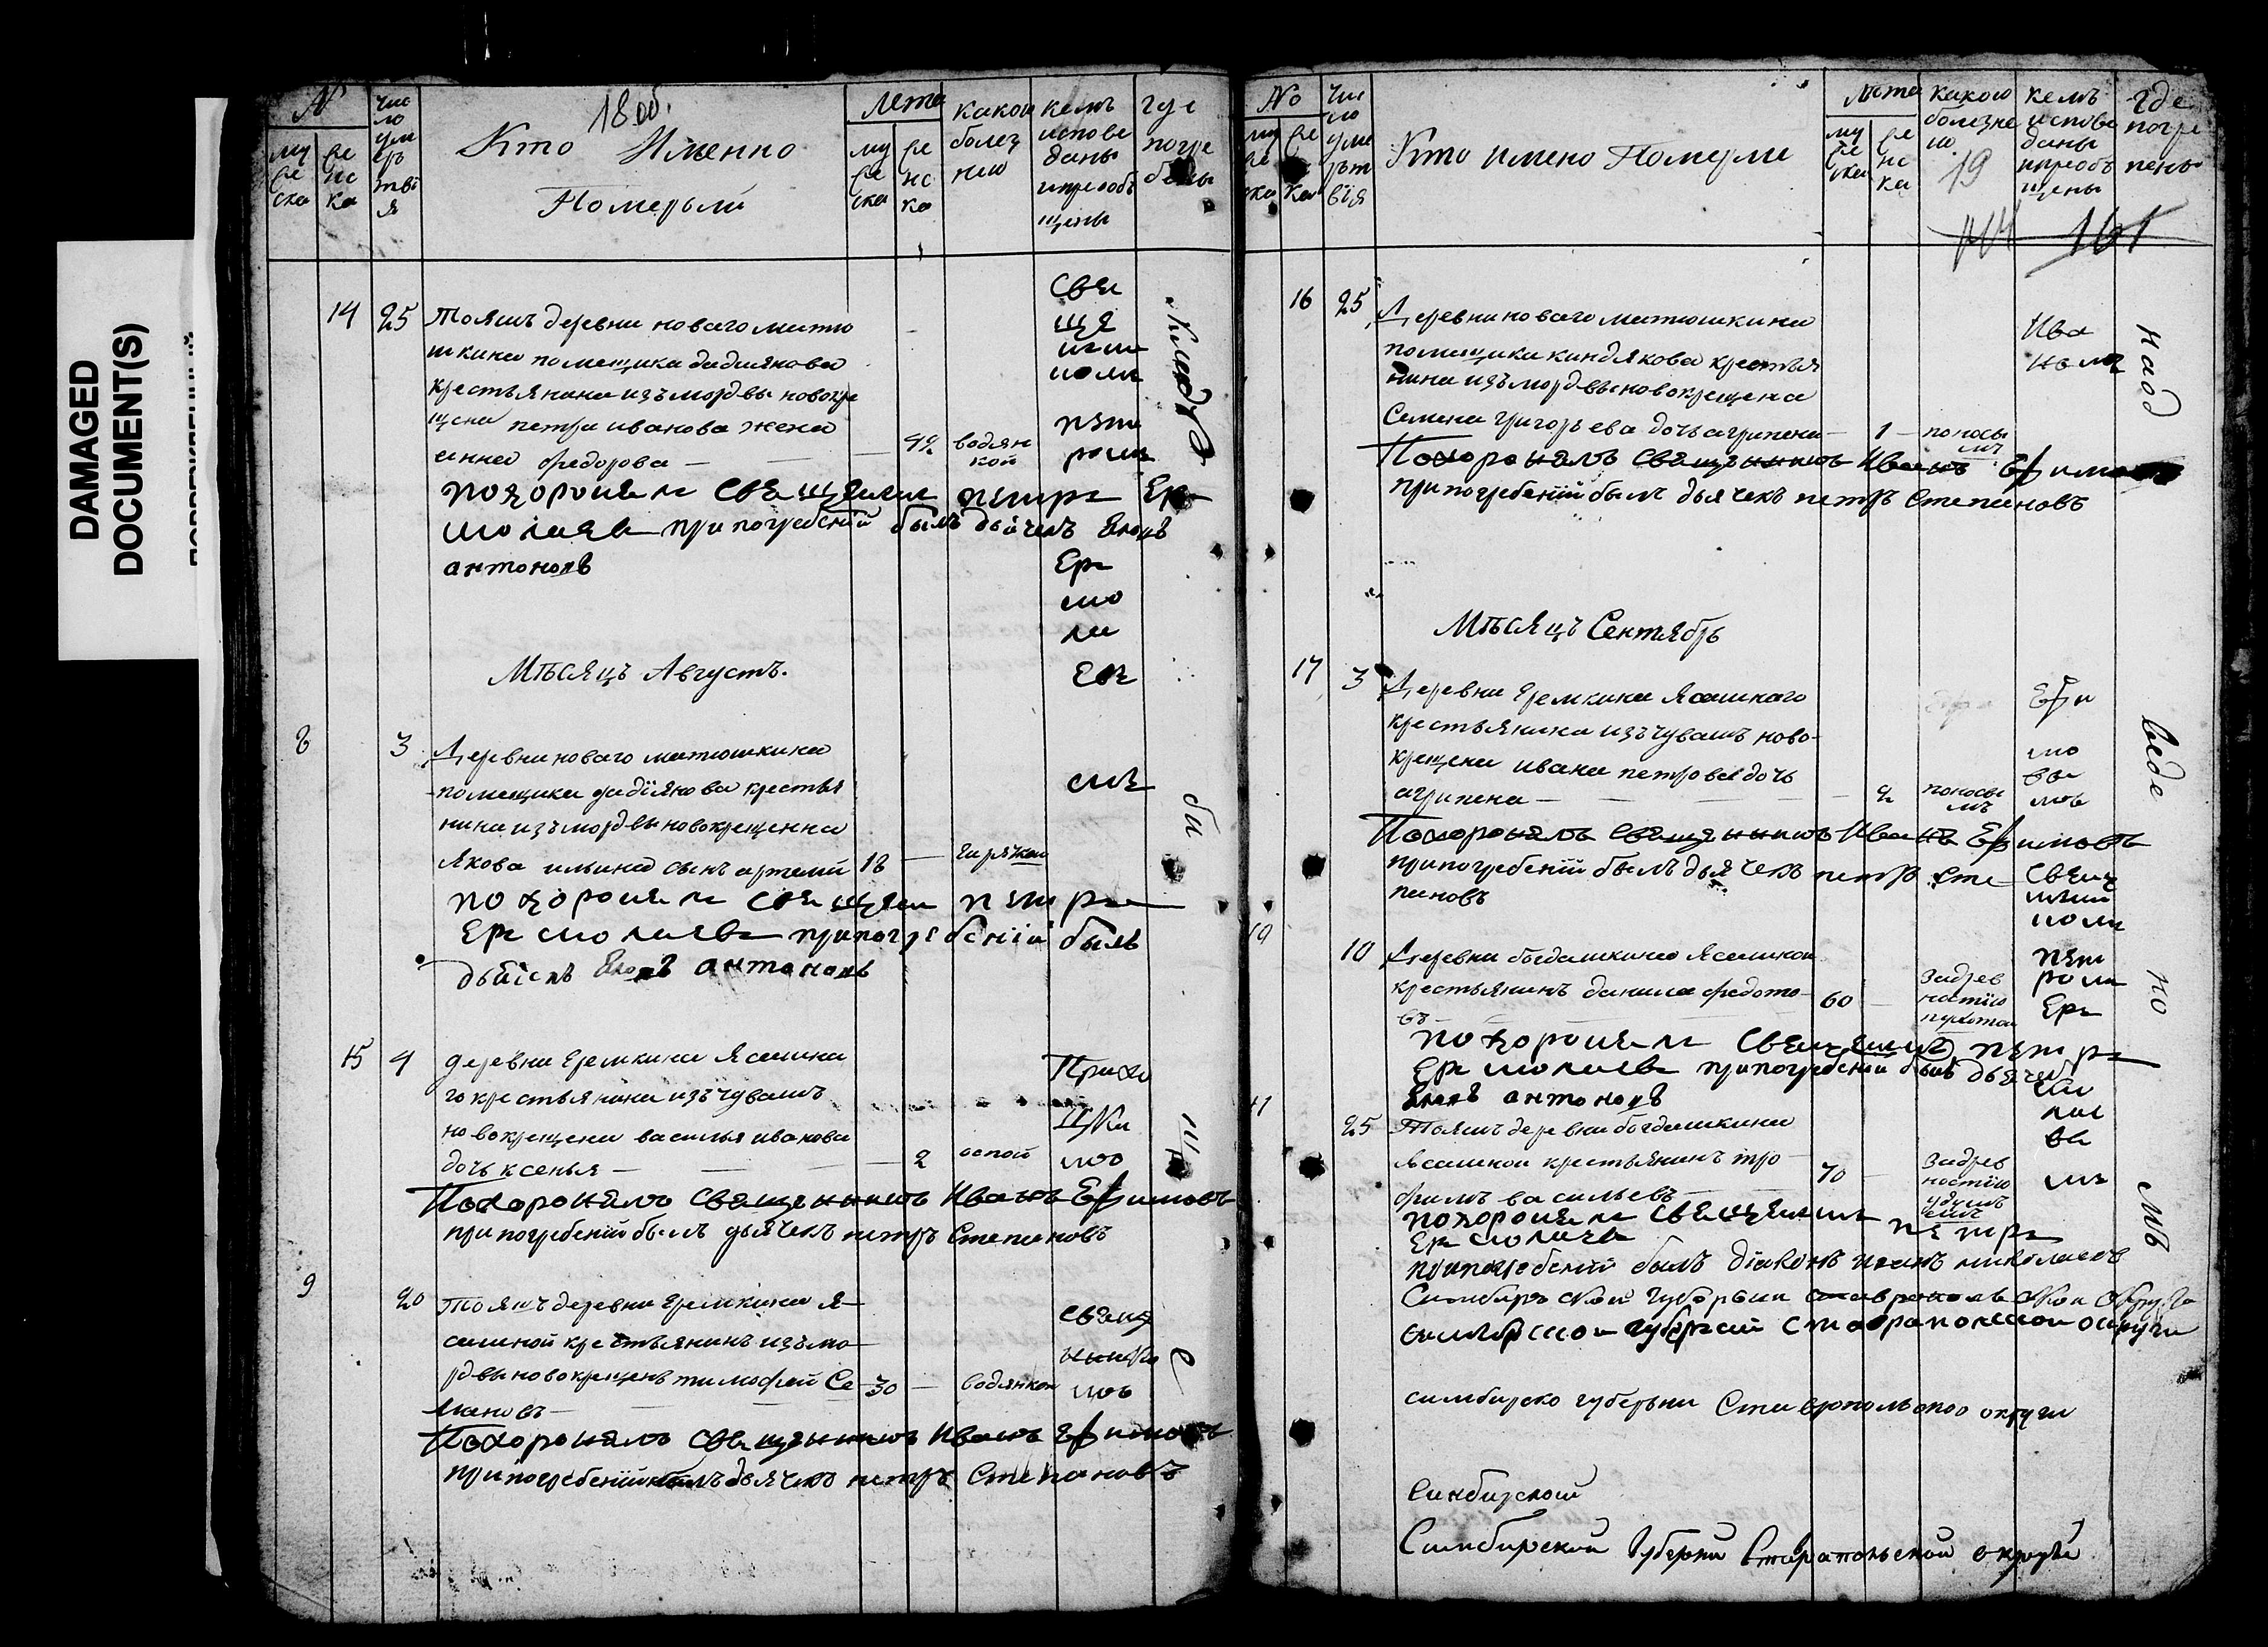 DAMAGED
DOCUMENT(S)
№
муска
женска
число умертвия
1806.
Кто Именно
Померьли
Лета
муска
женска
какою болезнию
кемъ исповеданы и приобщены
где погребены
14 25 Тояжъ деревни новаго матю
шкина помещика дадиянова
крестьянина изъ мордвы новокре
щена петра иванова жена
анна федорова — водян
кой
похоронелъ священикъ петръ Ер
молаевъ при погребенiй былъ дьячекъ
антоновъ
свя
ще
ни
комъ
пет
ромъ
Ер
мо
ла
ев
ымъ
Мѣсяцъ Августъ.
8 3 Деревни новаго матюшкина
помещика дадiянова крестья
нина изъ мордвы новокрещенна
якова ильина сынъ артемий 18 — горячкою
похоронелъ священикъ петръ
Ермолаевъ при погребенiй былъ
дьячекъ антоновъ
15 4 деревни Еремкина Ясашна
го крестьянина изъ чувашъ
новокрещена василья иванова
дочь ксенья — 2 оспой
Похоронилъ священникъ Иванъ Ефимовъ
при погребенiй былъ дьячекъ петръ Степановъ
9 20 Тояжъ деревни Еремкина я—
сашной крестьянинъ изъ мо
рдвы новокрещенъ тимофей Се 30 — водянкою
мановъ
Похоронилъ священникъ Иванъ Ефимовъ
при погребенiй былъ дьячекъ петръ Степановъ
священ
нико
мъ
на кладъ
би
ще
№
муска
женска
число умертвiя
Кто имено Померли
лета
муска
женска
какою болезнею
19
кемъ исповеданы и приобщены
где погребены
161
16 25 Деревни новаго матюшкина
помещика киндякова крестья
нина изъ мордвы новокрещена
Семена григорьева дочь агрипена — 1 — поносо
мъ
Похоронилъ священникъ Иванъ Ефимовъ
при погребенiй былъ дьячекъ петръ Степановъ
Ива
номъ
Мѣсяцъ Сентябрь
17 3 Деревни Еремкина Ясашнаго
крестьянина изъ чувашъ ново-
крещена ивана петрова дочь
агрипена — 2 поносо
мъ
Похоронилъ священникъ Иванъ Ефимовъ
при погребенiй былъ дьячекъ петръ Сте
пановъ
Ефи
мо
вы
мъ
10 10 Деревни богдашкина Ясашной
крестьянинъ данила федото— 60 — задрев
въ ностiю
похоронелъ священикъ петръ
Ермолаевъ при погребенiи былъ дьячекъ
антоновъ
Свящ
енни
комъ
пет
ромъ
Ер
мо
лае
вы
мъ
11 25 Тояжъ деревни богдашкина
Ясашной крестьянинъ тро- 70 — задрев
фимъ васильевъ ностiю
похоронелъ священикъ петръ
Ермолаевъ
при погребенiй былъ дiаконъ иванъ николаевъ
Симбирской губернии ставропольской округи
симбирской губернии ставропольской округи
симбирско губерьни Ставропольской округи
Синбирской
Симбирской Губернии Ставропольской округи